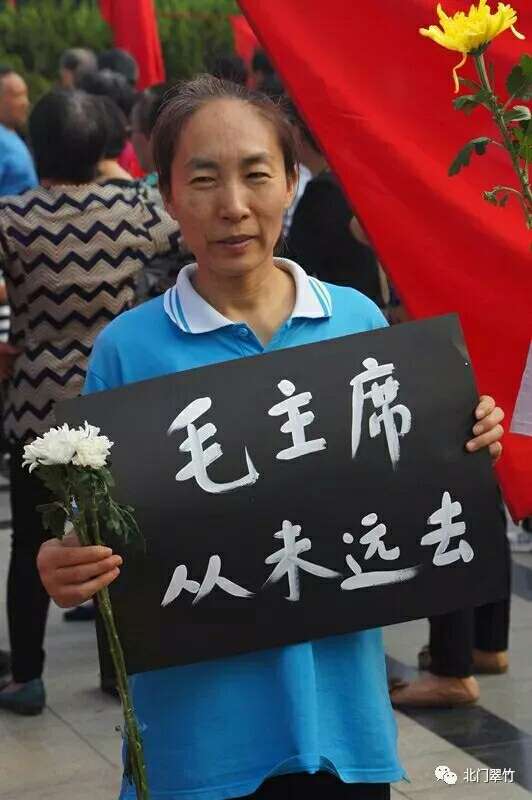 毛主席
从未远去
北门翠竹